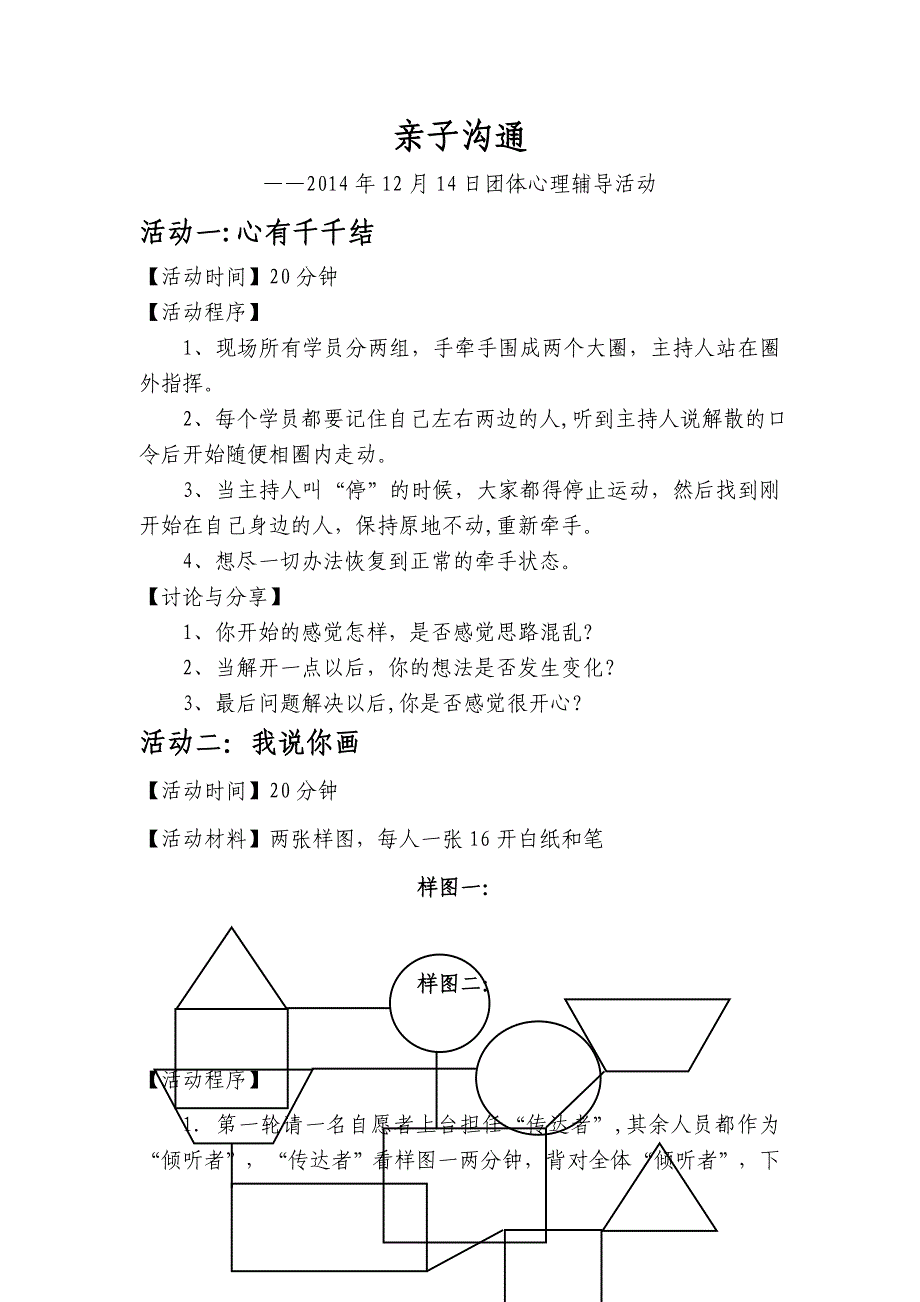 亲子沟通
——2014年12月14日团体心理辅导活动
活动一:心有千千结
【活动时间】20分钟
【活动程序】
1、现场所有学员分两组，手牵手围成两个大圈，主持人站在圈
外指挥。
2、每个学员都要记住自己左右两边的人,听到主持人说解散的口
令后开始随便相圈内走动。
3、当主持人叫“停”的时候，大家都得停止运动，然后找到刚
开始在自己身边的人，保持原地不动,重新牵手。
4、想尽一切办法恢复到正常的牵手状态。
【讨论与分享】
1、你开始的感觉怎样，是否感觉思路混乱?
2、当解开一点以后，你的想法是否发生变化?
3、最后问题解决以后,你是否感觉很开心?
活动二：我说你画
【活动时间】20分钟
【活动材料】两张样图，每人一张16开白纸和笔
样图一：
样图二：
【活动程序】
1．第一轮请一名自愿者上台担任“传达者”,其余人员都作为
“倾听者”，“传达者”看样图一两分钟，背对全体“倾听者”，下